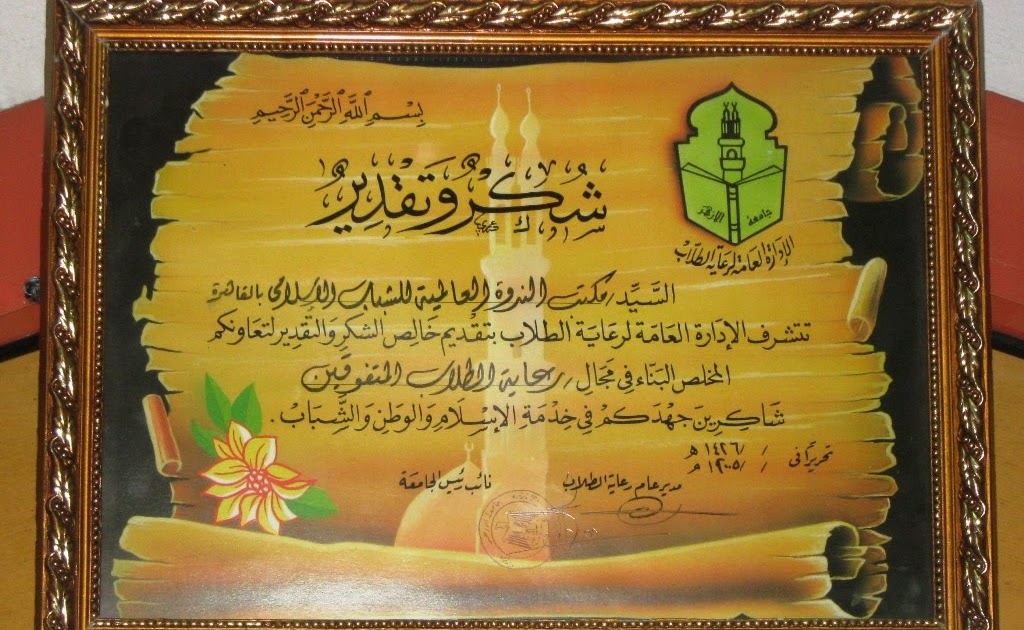 بِسْمِ اللَّهِ الرَّحْمَنِ الرَّحِيمِ
شُكْرٌ وَتَقْدِيرٌ
جامعة الأزهر
الإدارة العامة لرعاية الطلاب
السَّيِّد / مكتب الندوة العالمية للشباب الإسلامى بالقاهرة
تتشرف الإدارة العامة لرعاية الطلاب بتقديم خالِص الشكر والتقدير لتعاونكم
المخلص البنّاء في مجال / رعاية الطلاب المتفوقين
شاكرين جهدكم في خدمة الإسلام والوطن والشَّباب .
تحريرًا في / / ١٤٢٦ هـ
/ / ٢٠٠٥ م
مدير عام رعاية الطلاب
نائب رئيس الجامعة